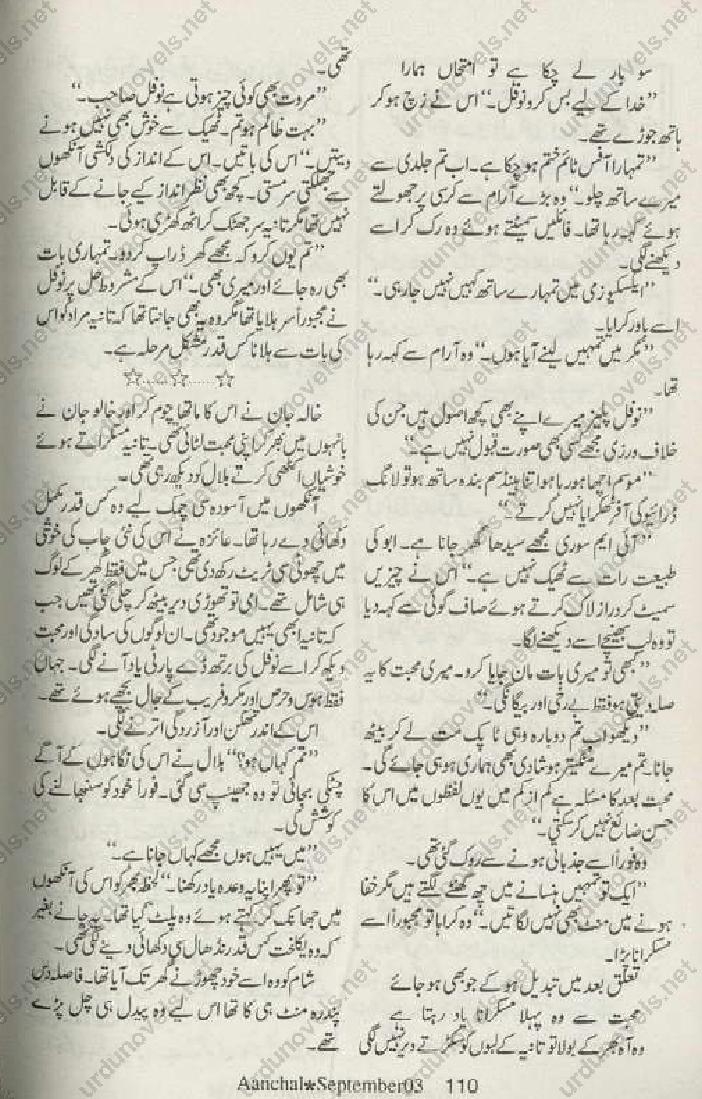 سو بار لے چکا ہے تو امتحاں ہمارا
”خدا کے لیے بس کرو نوفل۔“ اس نے زچ ہو کر
ہاتھ جوڑے تھے۔
”تمہارا آفس ٹائم ختم ہو چکا ہے۔ اب تم جلدی سے
میرے ساتھ چلو۔“ وہ بڑے آرام سے کرسی پر جھولتے
ہوئے کہہ رہا تھا۔ فائلیں سمیٹتے ہوئے وہ رک کر اسے
دیکھنے لگی۔
”ایکسکیوزمی میں تمہارے ساتھ کہیں نہیں جا رہی۔“
اسے باور کرایا۔
”مگر میں تمہیں لینے آیا ہوں۔“ وہ آرام سے کہہ رہا
تھا۔
”نوفل پلیز میرے اپنے بھی کچھ اصول ہیں جن کی
خلاف ورزی مجھے کسی بھی صورت قبول نہیں ہے۔“
”موسم اچھا ہو رہا ہو اتنا ہینڈسم بندہ ساتھ ہو تو لانگ
ڈرائیو کی آفر ٹھکرایا نہیں کرتے۔“
”آئی ایم سوری مجھے سیدھا گھر جانا ہے۔ ابو کی
طبیعت رات سے ٹھیک نہیں ہے۔“ اس نے چیزیں
سمیٹ کر دراز لاک کرتے ہوئے صاف گوئی سے کہہ دیا
تو وہ لب بھینچے اسے دیکھنے لگا۔
”کبھی تو میری بات مان جایا کرو۔ میری محبت کا یہ
صلہ دیتی ہو فقط بے رخی اور بیگانگی۔“
”دیکھو اب تم دوبارہ وہی ٹاپک مت لے کر بیٹھ
جانا۔ تم میرے منگیتر ہو شادی بھی ہماری ہو ہی جائے گی۔
محبت بعد کا مسئلہ ہے کم از کم میں یوں لفظوں میں اس کا
حسن ضائع نہیں کر سکتی۔“
وہ فوراً اسے جذباتی ہونے سے روک گئی تھی۔
”ایک تو تمہیں ہنسانے میں چھ گھنٹے لگتے ہیں مگر خفا
ہونے میں منٹ بھی نہیں لگاتیں۔“ وہ کراہا تو مجبوراً اسے
مسکرانا پڑا۔
تعلق بعد میں تبدیل ہو کے جو بھی ہو جائے
محبت سے وہ پہلا مسکرانا یاد رہتا ہے
وہ آہ بھر کے بولا تو تانیہ کے لبوں کو سکڑتے دیر نہیں لگی
تھی۔
”مروت بھی کوئی چیز ہوتی ہے نوفل صاحب۔“
”بہت ظالم ہو تم۔ ٹھیک سے خوش بھی نہیں ہونے
دیتیں۔“ اس کی باتیں۔ اس کے انداز کی دلکشی آنکھوں
سے جھلکتی سرمستی۔ کچھ بھی نظر انداز کیے جانے کے قابل
نہیں تھا مگر تانیہ سر جھٹک کر اٹھ کھڑی ہوئی۔
”تم یوں کرو کہ مجھے گھر ڈراپ کر دو۔ تمہاری بات
بھی رہ جائے اور میری بھی۔“ اس کے مشروط حل پر نوفل
نے مجبوراً سر ہلایا تھا مگر وہ یہ بھی جانتا تھا کہ تانیہ مراد کو اس
کی بات سے ہلانا کس قدر مشکل مرحلہ ہے۔
☆......☆......☆
خالہ جان نے اس کا ماتھا چوم کر اور خالو جان نے
بانہوں میں بھر کر اپنی محبت لٹائی تھی۔ تانیہ مسکراتے ہوئے
خوشیاں اکٹھی کرتے بلال کو دیکھ رہی تھی۔
آنکھوں میں آسودہ سی چمک لیے وہ کس قدر مکمل
دکھائی دے رہا تھا۔ عائزہ نے اس کی نئی جاب کی خوشی
میں چھوٹی سی ٹریٹ رکھ دی تھی جس میں فقط گھر کے لوگ
ہی شامل تھے۔ امی تو تھوڑی دیر بیٹھ کر چلی گئی تھیں جب
کہ تانیہ ابھی یہیں موجود تھی۔ ان لوگوں کی سادگی اور محبت
دیکھ کر اسے نوفل کی برتھ ڈے پارٹی یاد آنے لگی۔ جہاں
فقط ہوس و حرص اور مکر و فریب کے جال بچھے ہوئے تھے۔
اس کے اندر تھکن اور آزردگی اترنے لگی۔
”تم کہاں ہو؟“ بلال نے اس کی نگاہوں کے آگے
چٹکی بجائی تو وہ جھینپ سی گئی۔ فوراً خود کو سنبھالنے کی
کوشش کی۔
”میں یہیں ہوں مجھے کہاں جانا ہے۔“
”تو پھر اپنا یہ وعدہ یاد رکھنا۔“ لحظہ بھر کو اس کی آنکھوں
میں جھانک کر کہتے ہوئے وہ پلٹ گیا تھا۔ یہ جانے بغیر
کہ وہ یکلخت کس قدر نڈھال سی دکھائی دینے لگی تھی۔
شام کو وہ اسے خود چھوڑنے گھر تک آیا تھا۔ فاصلہ دس
پندرہ منٹ ہی کا تھا اس لیے وہ پیدل ہی چل پڑے
تھے۔
Aanchal★September03 110
urdunovels.net